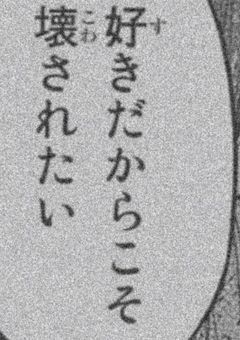 好きだからこそ
壊されたい